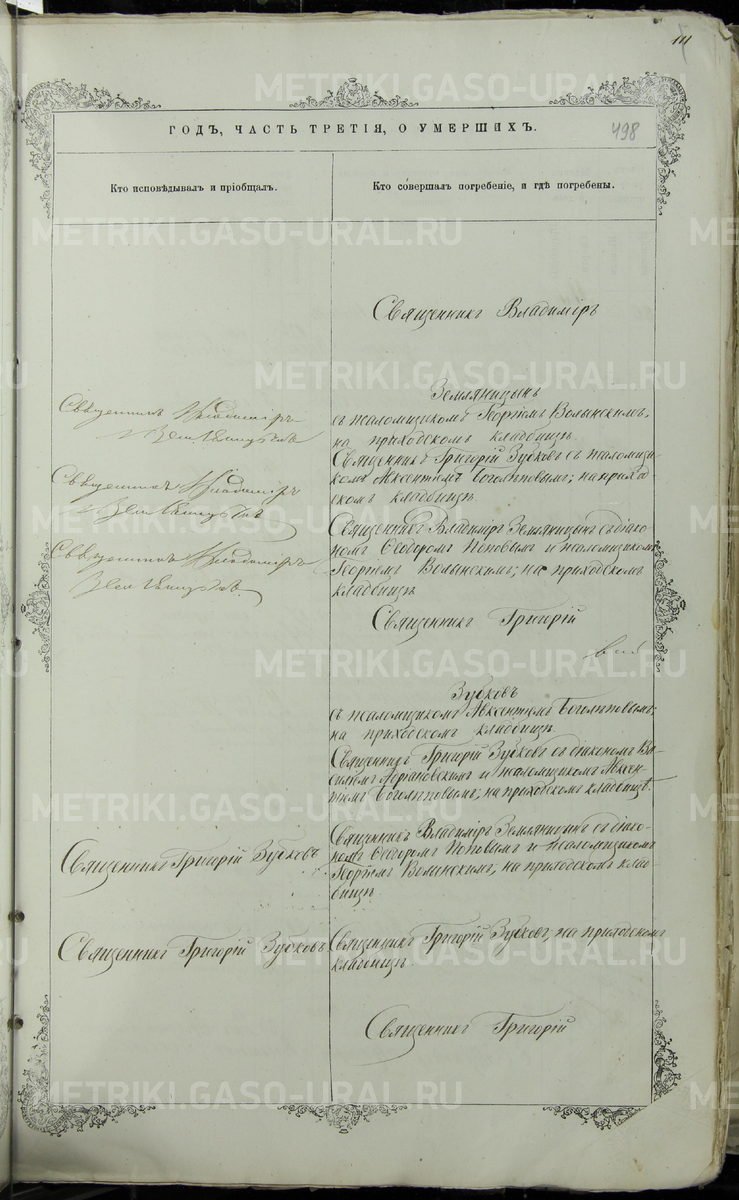 111
ГОДЪ, ЧАСТЬ ТРЕТІЯ, О УМЕРШИХЪ.
498
Кто исповѣдывалъ и пріобщалъ.
Кто совершалъ погребеніе, и гдѣ погребены.
Священникъ Владиміръ
Земляницынъ
съ псаломщикомъ Георгіемъ Волынскимъ,
на приходскомъ кладбищѣ
Священникъ Владиміръ
Земляницынъ
Священникъ Григорій Зубковъ съ псаломщи-
комъ Авксентіемъ Боголѣповымъ; на прихо-
дскомъ кладбищѣ
Священникъ Владиміръ
Земляницынъ
Священникъ Владиміръ Земляницынъ съ діако-
номъ Ѳеодоромъ Поповымъ и псаломщикомъ
Георгіемъ Волынскимъ; на приходскомъ
кладбищѣ
Священникъ Владиміръ
Земляницынъ
Священникъ Григорій
Зубковъ
съ псаломщикомъ Авксентіемъ Боголѣповымъ;
на приходскомъ кладбищѣ
Священникъ Григорій Зубковъ съ діакономъ Ва-
силіемъ и псаломщикомъ Авксен-
тіемъ Боголѣповымъ; на приходскомъ кладбищѣ.
Священникъ Григорій Зубковъ
Священникъ Владиміръ Земляницынъ съ діако-
номъ Ѳеодоромъ Поповымъ и псаломщикомъ
Георгіемъ Волынскимъ; на приходскомъ клад-
бищѣ
Священникъ Григорій Зубковъ
Священникъ Григорій Зубковъ, на приходскомъ
кладбищѣ.
Священникъ Григорій
METRIKI.GASO-URAL.RU